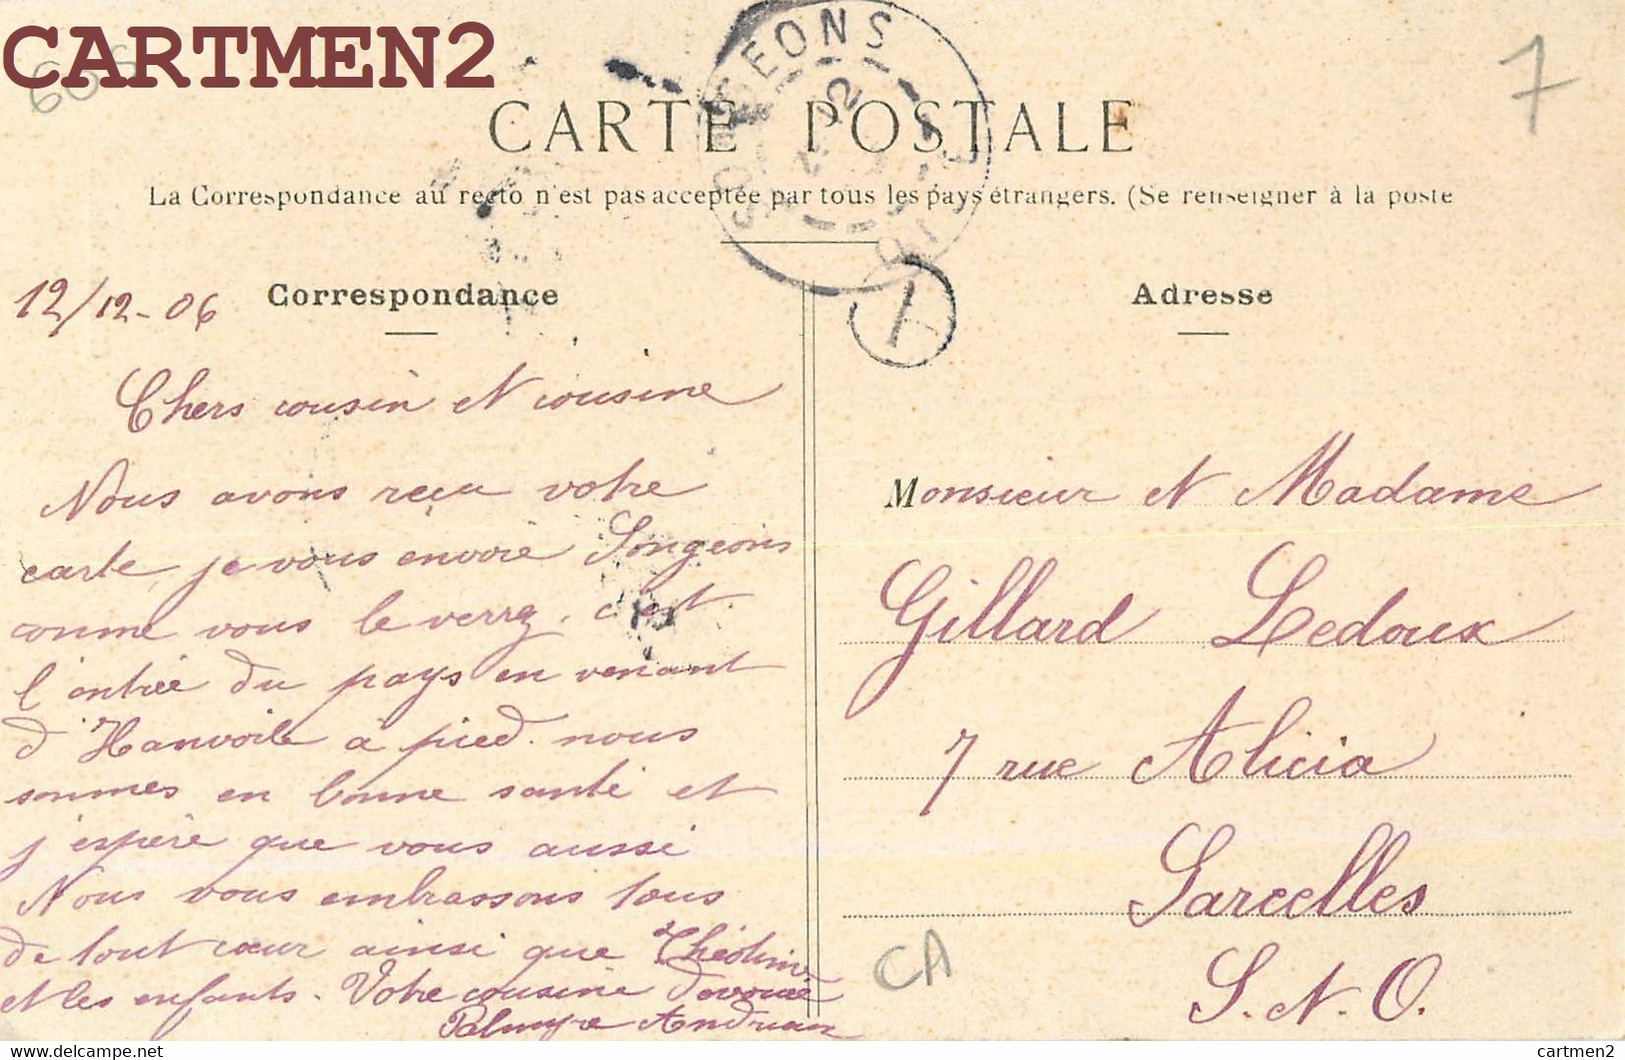 CARTMEN2
606
7
SONGEONS
OISE
CARTE POSTALE
La Correspondance au recto n'est pas acceptée par tous les pays étrangers. (Se renseigner à la poste
12/12-06
Correspondance
Adresse
Chers cousin et cousine
Nous avons reçu votre
carte, je vous envoie Songeons
comme vous le verrez, c'est
l'entrée du pays en venant
d'Hanvoile à pied. nous
sommes en bonne santé et
j'espère que vous aussi
Nous vous embrassons tous
de tout cœur ainsi que Théoline
et les enfants. Votre cousine dévouée
Palmyre
Monsieur et Madame
Gillard Ledoux
7 rue Alicia
Sarcelles
S. et O.
CA
© delcampe.net
cartmen2